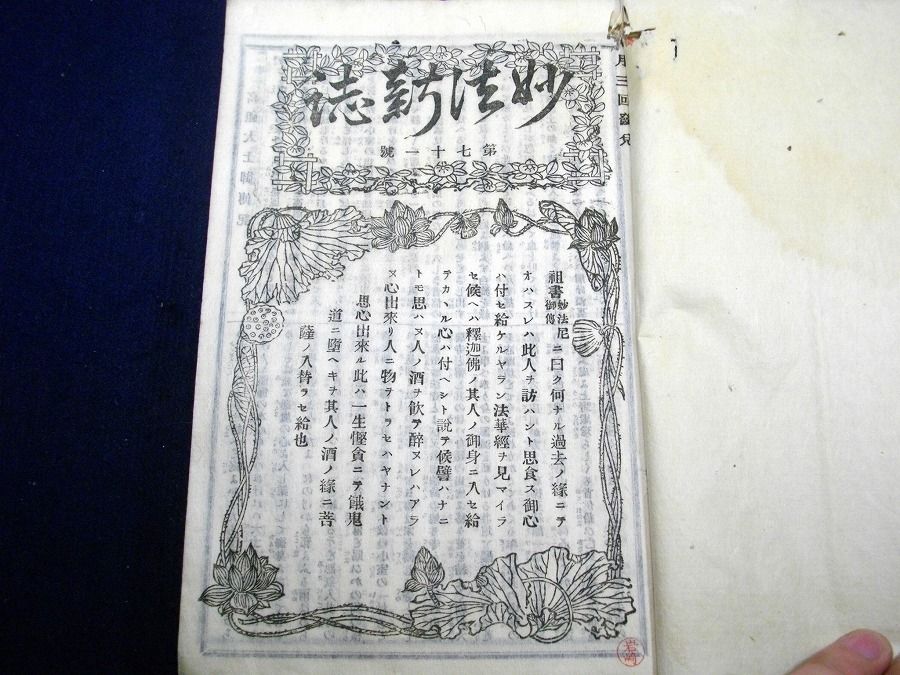 月三回發兌
妙法新誌
第七十一號
祖書妙法尼御傳ニ曰ク何ナル過去ノ緣ニテ
オハスレハ此人ヲ訪ハント思食ス御心
ハ付セ給ケルヤラン法華經ヲ見マイラ
セ候ヘハ釋迦佛ノ其人ノ御身ニ入セ給
テカヽル心ハ付ヘシト說テ候譬ハナニ
トモ思ハヌ人ノ酒ヲ飲テ醉ヌレハアラ
ヌ心出來リ人ニ物ヲトラセハヤナント
思心出來ル此ハ一生慳貪ニテ餓鬼
道ニ墮ヘキヲ其人ノ酒ノ緣ニ菩
薩ノ入替ラセ給也
岩崎